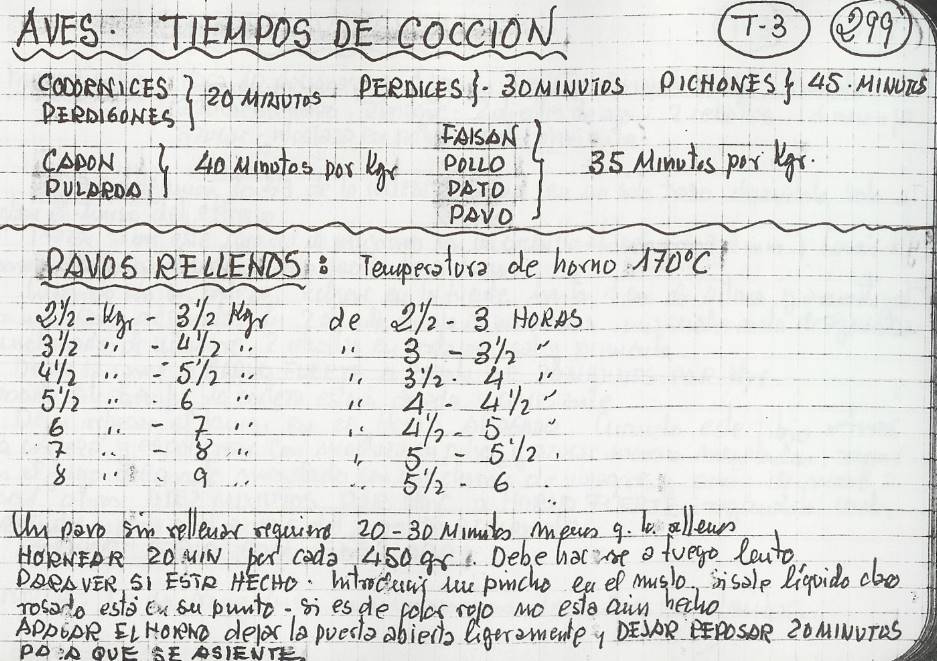 AVES. TIEMPOS DE COCCION T-3 299
CODORNICES PERDIGONES } 20 MINUTOS PERDICES }. 30 MINUTOS PICHONES } 45. MINUTOS
CAPON PULARDA } 40 Minutos por Kgr FAISAN POLLO PATO PAVO } 35 Minutos por Kgr.
PAVOS RELLENOS : Temperatura de horno 170ºC
2½ - Kgr - 3½ Kgr de 2½ - 3 HORAS
3½ " - 4½ " " 3 - 3½ "
4½ " - 5½ " " 3½ - 4 "
5½ " - 6 " " 4 - 4½ "
6 " - 7 " " 4½ - 5 "
7 " - 8 " " 5 - 5½ "
8 " - 9 " " 5½ - 6 "
Un pavo sin rellenar requiere 20-30 Minutos menos q. lo. rellenos
HORNEAR 20 MIN por cada 450 gr. Debe hacerse a fuego lento
PARA VER SI ESTA HECHO. Introducir un pincho en el muslo, si sale líquido claro
rosado está en su punto - si es de color rojo no esta aún hecho
APAGAR EL HORNO dejar la puerta abierta ligeramente y DEJAR REPOSAR 20 MINUTOS
PARA QUE SE ASIENTE